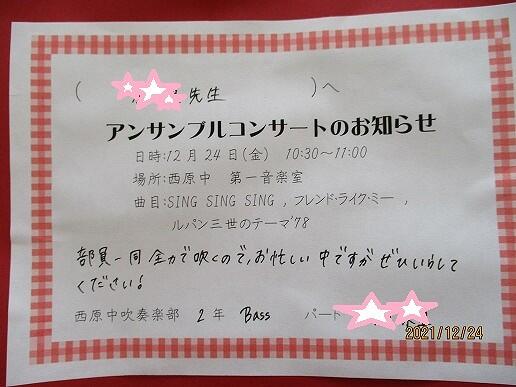 ( 先生 )へ
アンサンブルコンサートのお知らせ
日時:12月24日(金) 10:30~11:00
場所:西原中 第一音楽室
曲目:SING SING SING , フレンド・ライク・ミー ,
ルパン三世のテーマ'78
部員一同 全力で吹くので、お忙しい中ですが ぜひいらして
ください!
西原中吹奏楽部 2年 Bass パート
2021/12/24